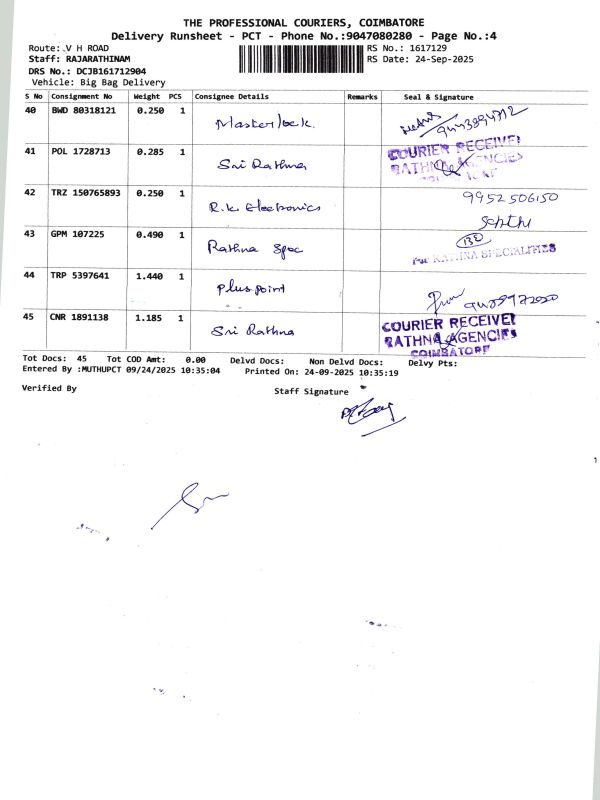 THE PROFESSIONAL COURIERS, COIMBATORE
Delivery Runsheet - PCT - Phone No.:9047080280 - Page No.:4
Route: V H ROAD RS No.: 1617129
Staff: RAJARATHINAM RS Date: 24-Sep-2025
DRS No.: DCJB161712904
Vehicle: Big Bag Delivery
S No Consignment No Weight PCS Consignee Details Remarks Seal & Signature
40 BWD 80318121 0.250 1 Masterlock.
41 POL 1728713 0.285 1 Sri Rathna COURIER RECEIVE
RATHNA AGENCIES
42 TRZ 150765893 0.250 1 R.K Electronics 9952506150
43 GPM 107225 0.490 1 Rathna Spec For RATHNA SPECIALITIES
44 TRP 5397641 1.440 1 Plus point
45 CNR 1891138 1.185 1 Sri Rathna COURIER RECEIVE
RATHNA AGENCIES
COIMBATORE
Tot Docs: 45 Tot COD Amt: 0.00 Delvd Docs: Non Delvd Docs: Delvy Pts:
Entered By :MUTHUPCT 09/24/2025 10:35:04 Printed On: 24-09-2025 10:35:19
Verified By Staff Signature